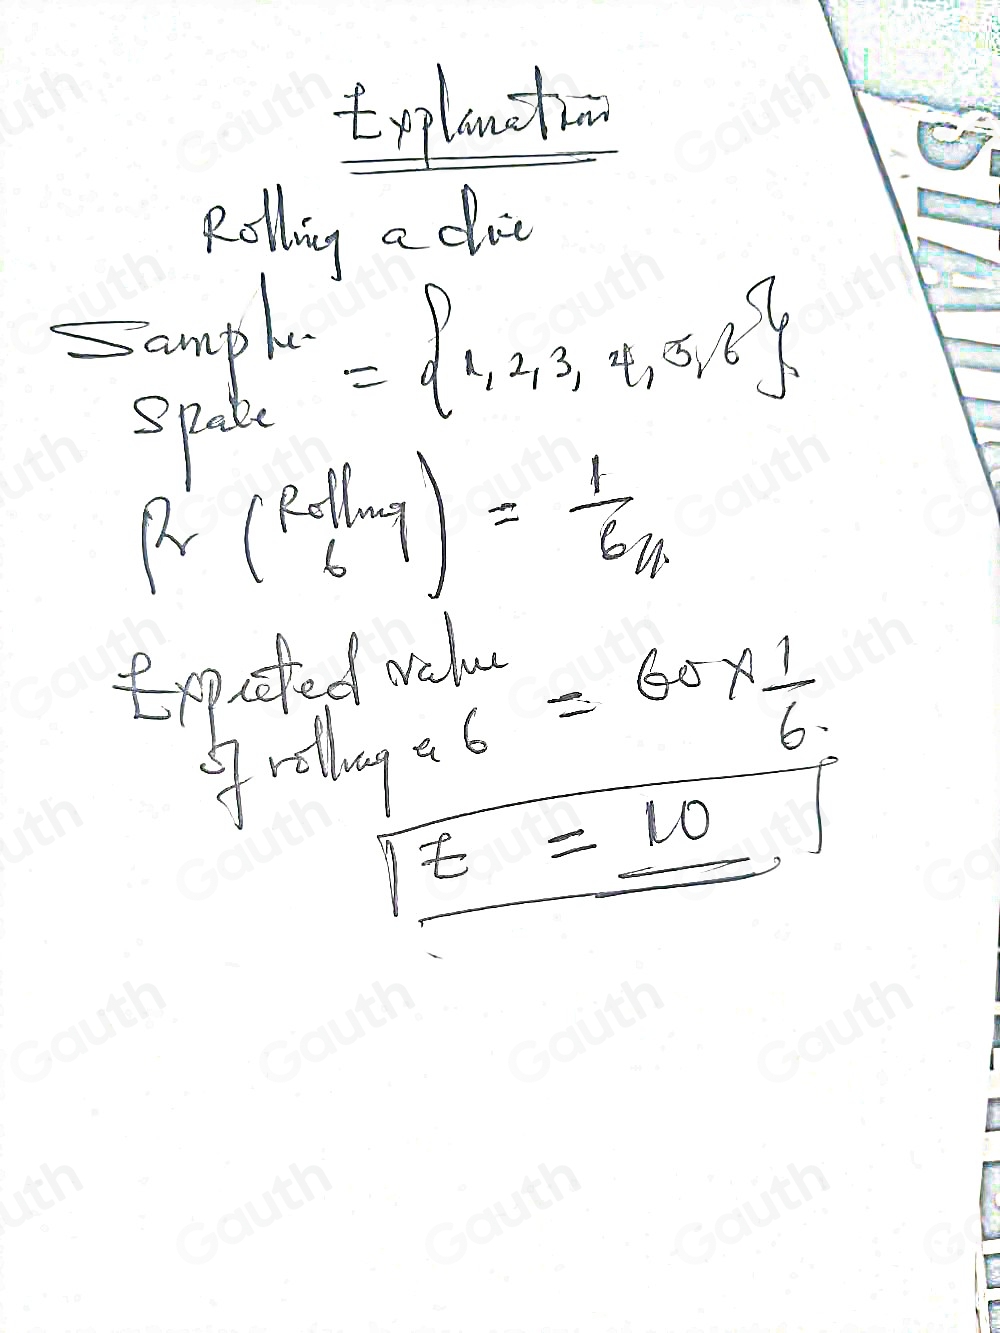 Explanation
Rolling a die
Sample Space = {1, 2, 3, 4, 5, 6}
Pr (Rolling 6) = 1/6
Expected value of rolling a 6 = 60 × 1/6.
E = 10
Gauth